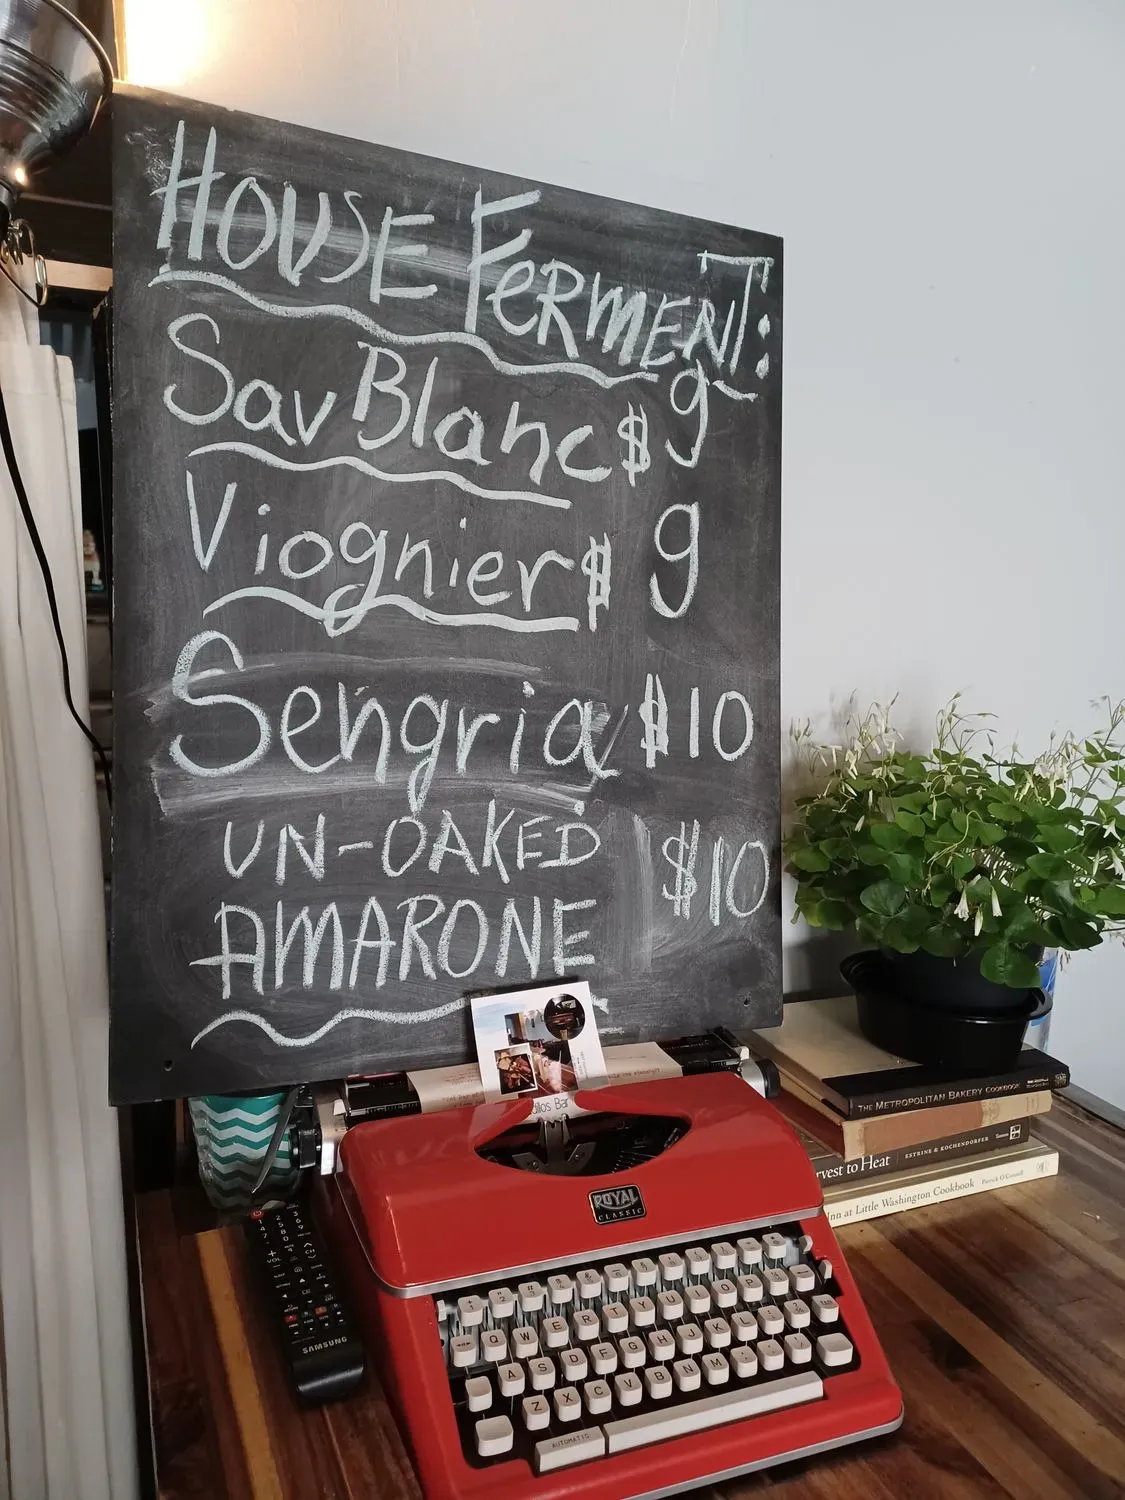 HOUSE FERMENT:
Sav Blanc $ 9
Viognier $ 9
Sengria $10
UN-OAKED
AMARONE $10
illos Bar
ROYAL
CLASSIC
THE METROPOLITAN BAKERY COOKBOOK
rvest to Heat ESTRINE & KOCHENDORFER
Inn at Little Washington Cookbook Patrick O'Connell
SAMSUNG
Q W E R T Y U I O P
A S D F G H J K L
Z X C V B N M
AUTOMATIC